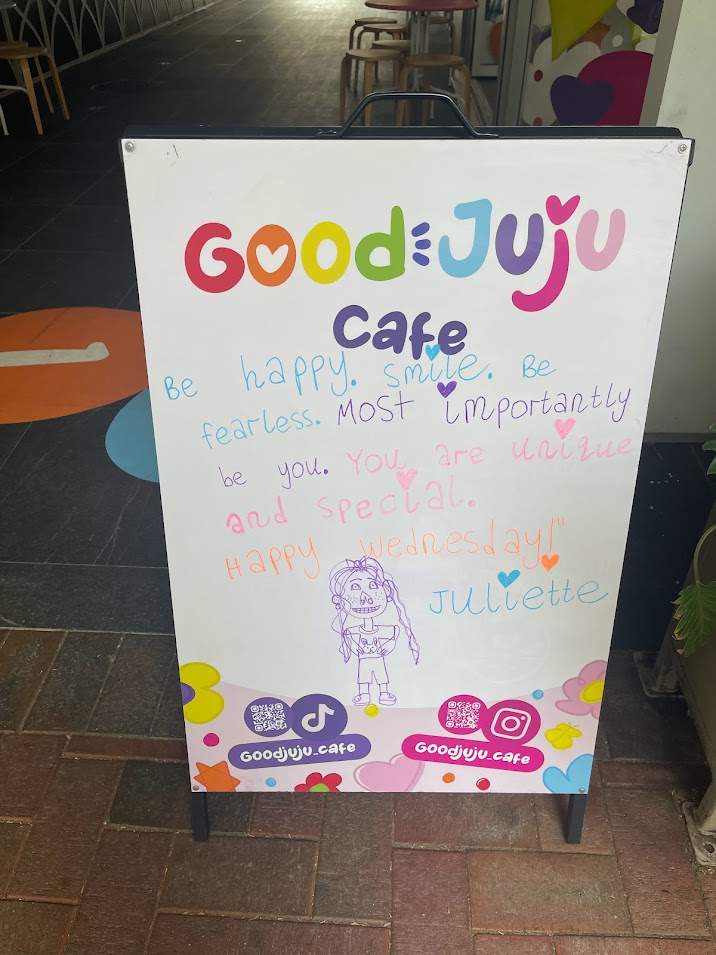 Good Juju
Cafe
Be happy. Smile. Be
fearless. MOST importantly
be you. You are unique
and special.
Happy Wednesday!"
Juliette
Goodjuju_cafe
Goodjuju_cafe